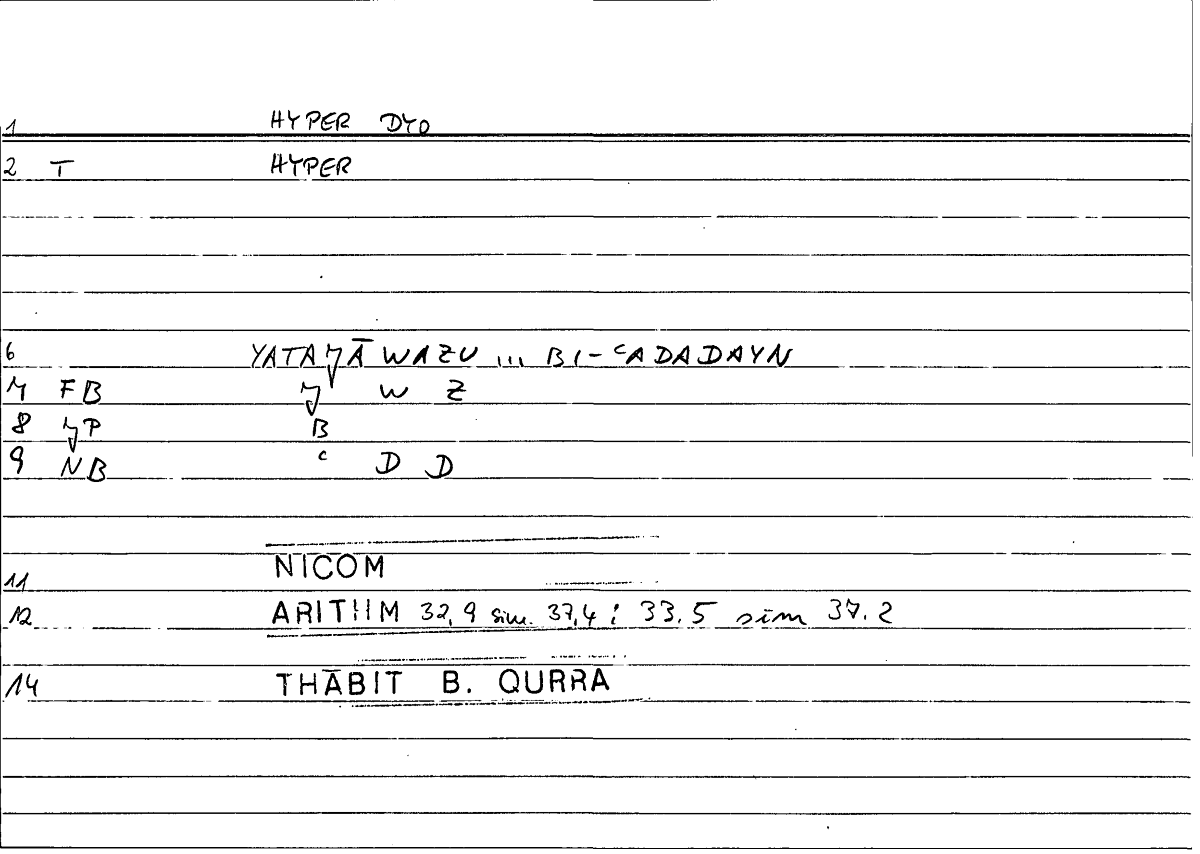 1 HYPER DYO
2 T HYPER
6 YATAJ̌ĀWAZU ... BI-ʿADADAYN
7 FB J̌ W Z
8 J̌P B
9 NB ʿ D D
11 NICOM
12 ARITHM 32,9 sim. 37,4 ; 33.5 sim 37.2
14 THĀBIT B. QURRA